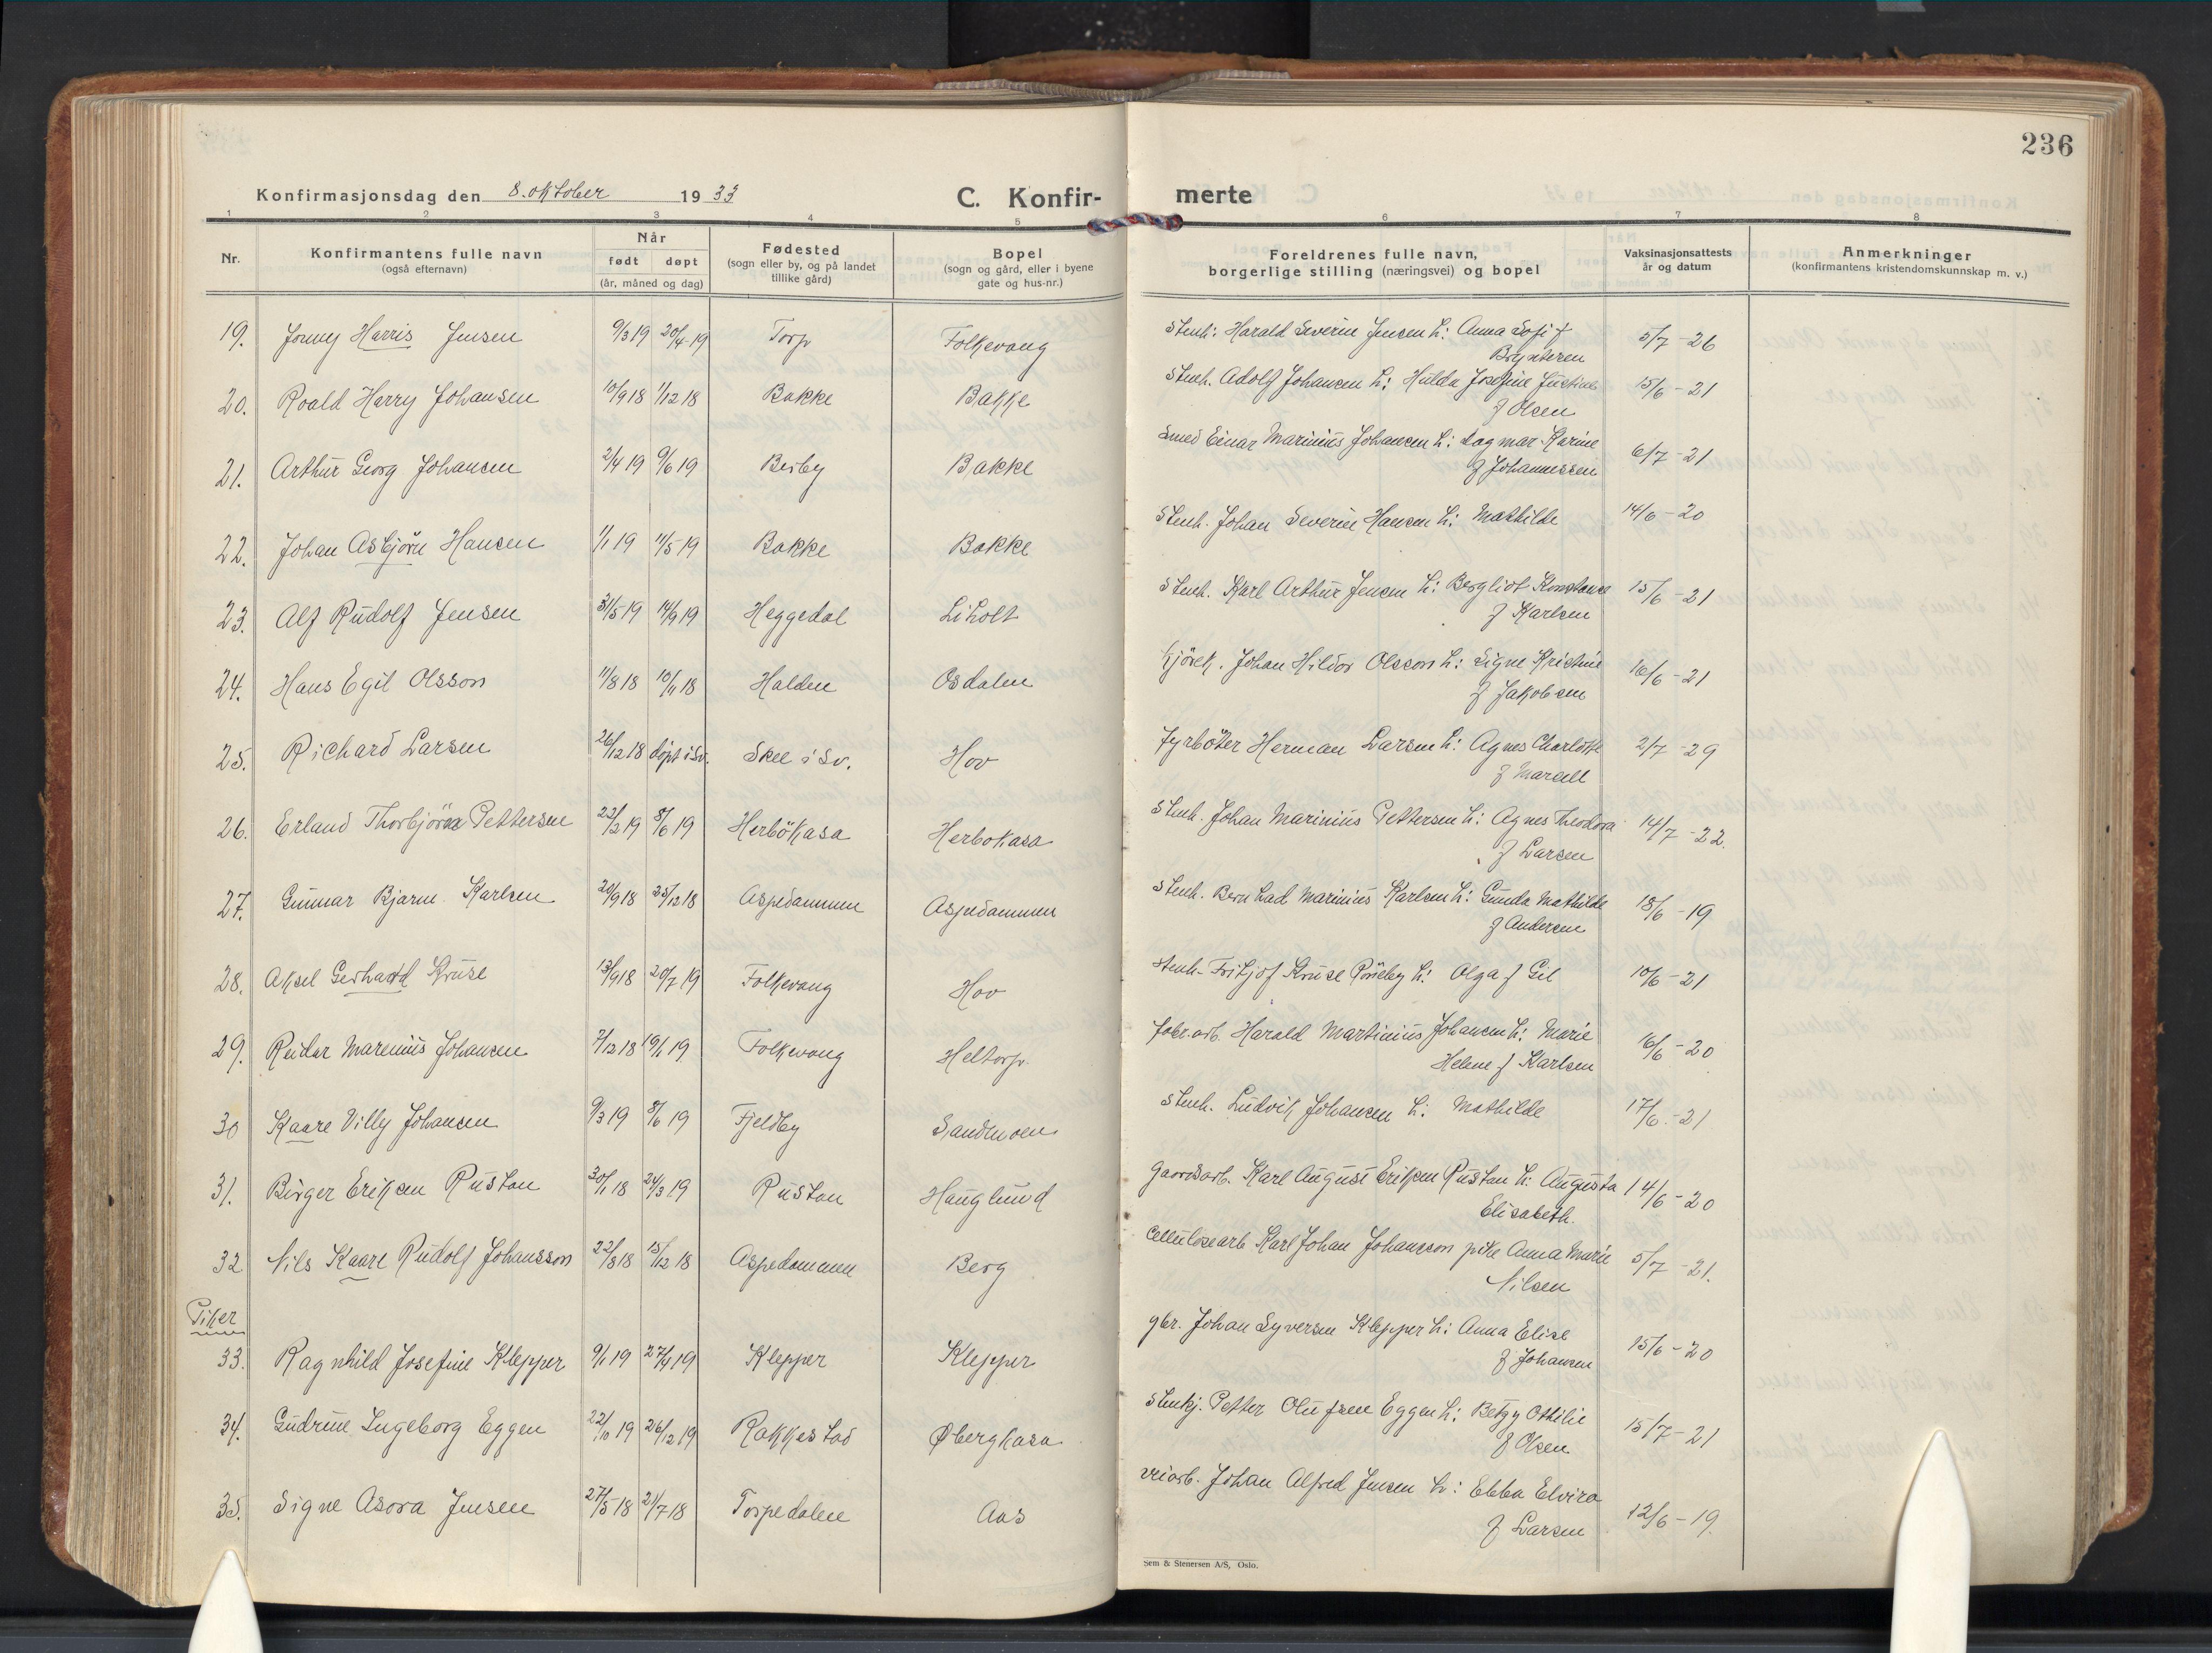 236
Konfirmasjonsdag den 8. oktober 1933 C. Konfir- merte
1 2 3 4 5 6 7 8
Nr. Konfirmantens fulle navn (også efternavn) Når født døpt (år, måned og dag) Fødested (sogn eller by, og på landet tillike gård) Bopel (sogn og gård, eller i byene gate og hus-nr.) Foreldrenes fulle navn, borgerlige stilling (næringsvei) og bopel Vaksinasjonsattests år og datum Anmerkninger (konfirmantens kristendomskunnskap m. v.)
19. Jonny Harris Jensen 9/3 19 20/4-19 Torp Folkevang Stenh: Harald Severin Jensen h: Anna Sofi f 5/7-26
Brynteren
20. Roald Harry Johansen 10/9 18 1/12 18 Bakke Bakke Stenh. Adolf Johansen h: Hulda Josefine Justine 15/6-21
f Olsen
21. Arthur Georg Johansen 2/4 19 9/6 19 Berby Bakke Smed Einar Marinius Johansen h: Dagmar Karine 6/7-21
f Johannessen
22. Johan Asbjørn Hansen 1/1 19 11/5 19 Bakke Bakke Stenh. Johan Severin Hansen h: Mathilde 14/6-20
23. Alf Rudolf Jensen 31/5 19 14/9 19 Heggedal Liholt Stenh. Karl Arthur Jensen h: Bergliot Konstance 15/6-21
f Karlsen
24. Hans Egil Olsson 11/8 18 10/11 18 Halden Osdalen Kjørek. Johan Hildor Olsson h: Signe Kristine 16/6-21
f Jakobsen
25. Richard Larsen 26/12 18 døpt i Sv. Skee i Sv. Hov Fyrbøter Herman Larsen h: Agnes Charlotte 2/7-29
f Marcell
26. Erland Thorbjørn Pettersen 22/2 19 8/6 19 Herbökasa Herbokasa Stenh. Johan Marinius Pettersen h: Agnes Theodora 14/7-22.
f Larsen
27. Gunnar Bjarne Karlsen 20/9 18 25/12 18 Aspedammen Aspedammen Stenh. Bernhad Marinius Karlsen h: Gunda Mathilde 18/6-19
f Andersen
28. Aksel Gerhard Kruse 13/9 18 20/7 19 Folkevang Hov Stenh- Fritjof Kruse h: Olga f Gil 10/6-21
29. Reidar Marenius Johansen 7/12 18 19/1 19 Folkevang Heltorp. Fabr.arb. Harald Martinius Johansen h: Marie 16/6-20
Helene f Karlsen
30 Kaare Villy Johansen 9/3 19 8/6 19 Fjeldby Sandmoen Stenh. Ludvik Johansen h: Mathilde 17/6-21
31. Birger Eriksen Rustan 30/1 18 24/3 19 Rustan Hauglund Gaardsarb. Karl August Eriksen Rustan h: Augusta 14/6-20
Elisabeth.
32 Nils Kaare Rudolf Johansson 22/8 18 15/12 18 Aspedammen Berg Cellulosearb Karl Johan Johansson pike Anna Marie 5/7-21.
Nilsen
Piker
33. Ragnhild Josefine Klepper 9/1 19 27/4 19 Klepper Klepper gbr. Johan Syversen Klepper h: Anna Elise 15/6-20
f Johansen
34. Gudrun Ingeborg Eggen 22/10 19 26/12 19 Rakkestad Øbergkasa Stenkj. Petter Olufsen Eggen h: Betzy Othilie 15/7-21
f Olsen
35. Signe Asora Jensen 27/5 18 21/7 18 Torpedalen Aas veiarb. Johan Alfred Jensen h: Ebba Elvira 12/6-19.
f Larsen
Sem & Stenersen A/S, Oslo.